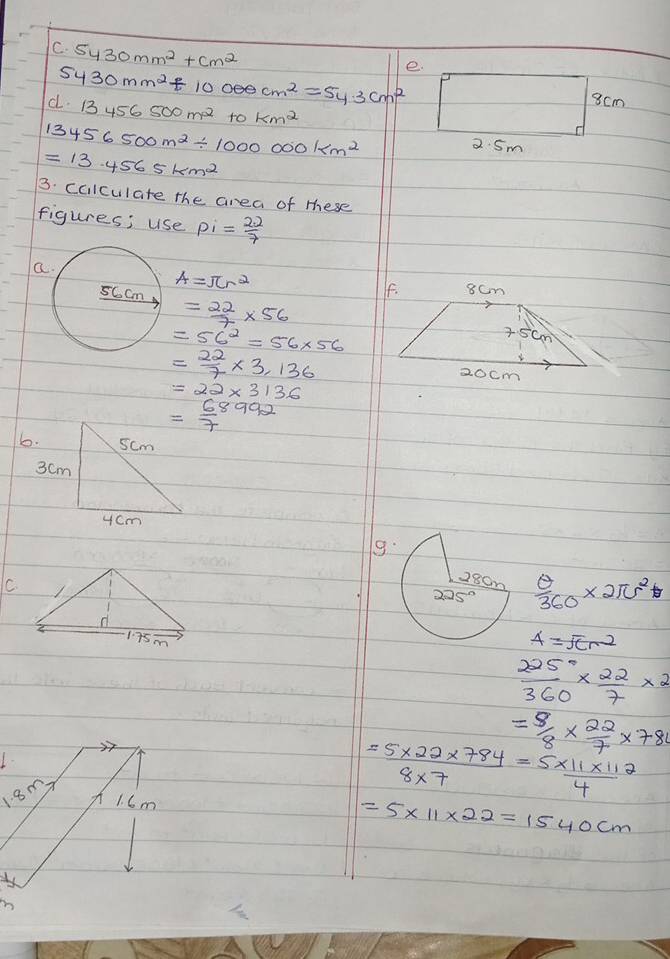 C. 5430mm² + cm²
5430mm² ÷ 10 000 cm² = 54.3cm²
d. 13 456 500m² to km²
13456 500m² ÷ 1000 000 km²
= 13.4565 km²
3. calculate the area of these
figures; use pi = 22/7
a.
56cm
A = πr²
= 22/7 × 56
= 56² = 56×56
= 22/7 × 3,136
= 22 × 3136
= 68992/7
b.
5cm
3cm
4cm
C
1.75m
1.8m
1.6m
e.
8cm
2.5m
f.
8cm
7.5cm
20cm
g.
28cm
225°
θ/360 × 2πr²
A = πr²
225°/360 × 22/7 × 2
= 5/8 × 22/7 × 784
= 5×22×784/8×7 = 5×11×112/4
= 5 × 11 × 22 = 1540cm